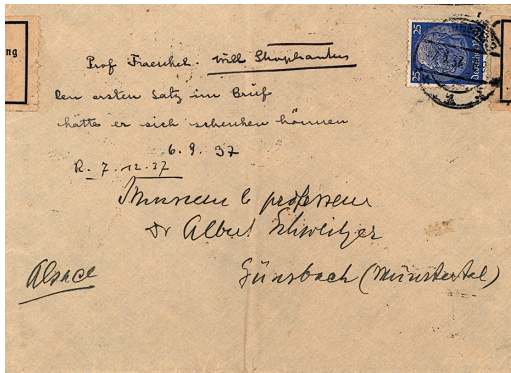 ng
25 25
25 25
Prof Fraenkel. will Strophantus
Den ersten Satz im Brief
hätte er sich schenken können
6. 9. 37
R. 7. 12. 37
Monsieur le professeur
Dr Albert Schweitzer
Alsace
Günsbach (Münstertal)